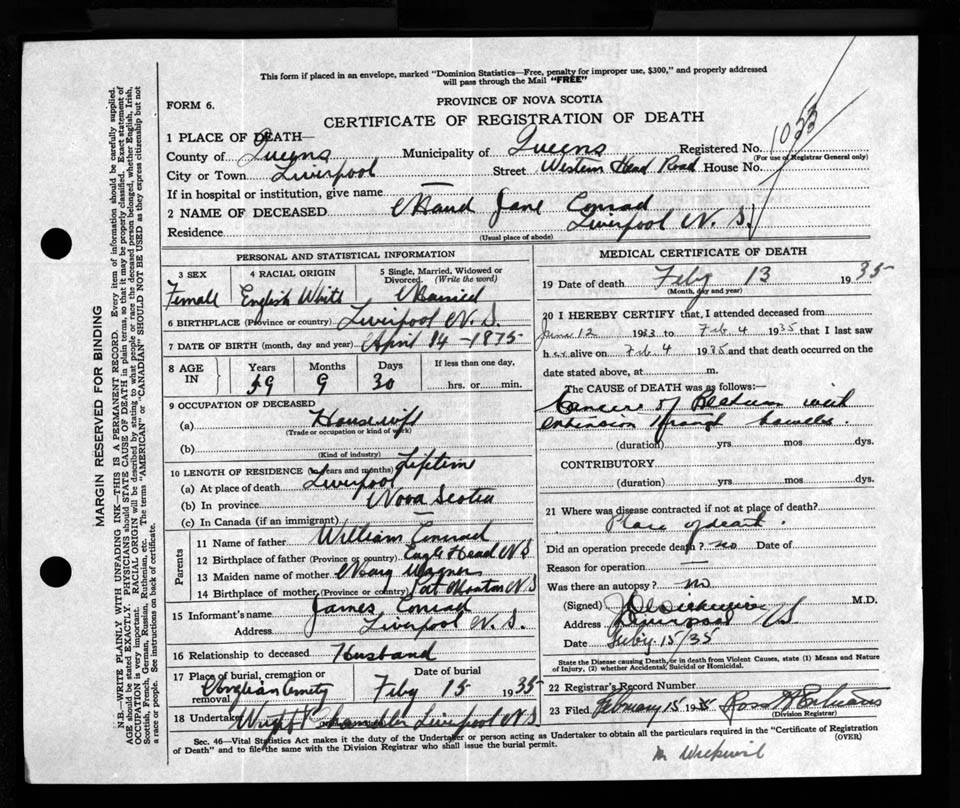 This form if placed in an envelope, marked "Dominion Statistics—Free, penalty for improper use, $300," and properly addressed
will pass through the Mail "FREE"
FORM 6.
PROVINCE OF NOVA SCOTIA
CERTIFICATE OF REGISTRATION OF DEATH
1 PLACE OF DEATH—
County of Queens Municipality of Queens Registered No. 1053
(For use of Registrar General only)
City or Town Liverpool Street Western Head Road House No.
If in hospital or institution, give name —
2 NAME OF DECEASED Maud Jane Conrad
Residence Liverpool N. S.
(Usual place of abode)
PERSONAL AND STATISTICAL INFORMATION
3 SEX 4 RACIAL ORIGIN 5 Single, Married, Widowed or Divorced. (Write the word)
Female English White Married
6 BIRTHPLACE (Province or country) Liverpool N. S.
7 DATE OF BIRTH (month, day and year) April 14 - 1875
8 AGE IN Years Months Days If less than one day,
59 9 30 hrs. or min.
9 OCCUPATION OF DECEASED
(a) Housewife
(Trade or occupation or kind of work)
(b)
(Kind of industry)
10 LENGTH OF RESIDENCE (in years and months) Lifetime
(a) At place of death Liverpool
(b) In province Nova Scotia
(c) In Canada (if an immigrant) —
Parents
11 Name of father William Conrad
12 Birthplace of father (Province or country) Eagle Head N S
13 Maiden name of mother Mary Wagner
14 Birthplace of mother (Province or country) Port Mouton N S
15 Informant's name James Conrad
Address Liverpool N. S.
16 Relationship to deceased Husband
17 Place of burial, cremation or removal Date of burial
Anglican Cemety Feby 15 1935
18 Undertaker Wright Chandler Liverpool N S
MEDICAL CERTIFICATE OF DEATH
19 Date of death Feby 13 1935
(Month, day and year)
20 I HEREBY CERTIFY that, I attended deceased from
June 12 1933 to Feb 4 1935 that I last saw
her alive on Feb 4 1935 and that death occurred on the
date stated above, at m.
The CAUSE of DEATH was as follows:—
Cancer of Rectum with
extension through bowels.
(duration) yrs. mos. dys.
CONTRIBUTORY
(duration) yrs. mos. dys.
21 Where was disease contracted if not at place of death?
Place of death.
Did an operation precede death? no Date of
Reason for operation —
Was there an autopsy? no
(Signed) M.D.
Address Liverpool N S
Date Feby. 15/35
State the Disease causing Death, or in death from Violent Causes, state (1) Means and Nature
of Injury, (2) whether Accidental, Suicidal or Homicidal.
22 Registrar's Record Number
23 Filed February 15 1935
(Division Registrar)
Sec. 46—Vital Statistics Act makes it the duty of the Undertaker or person acting as Undertaker to obtain all the particulars required in the "Certificate of Registration
of Death" and to file the same with the Division Registrar who shall issue the burial permit.
(OVER)
MARGIN RESERVED FOR BINDING
N.B.—WRITE PLAINLY WITH UNFADING INK—THIS IS A PERMANENT RECORD. Every item of information should be carefully supplied.
AGE should be stated EXACTLY. PHYSICIANS should STATE CAUSE OF DEATH in plain terms, so that it may be properly classified. Exact statement of
OCCUPATION is very important. RACIAL ORIGIN will be described by stating to what people or race the deceased person belonged, whether English, Irish,
Scottish, French, German, Russian, Ruthenian, etc. The terms "AMERICAN" or "CANADIAN" SHOULD NOT BE USED as they express citizenship but not
a race or people. See instructions on back of certificate.